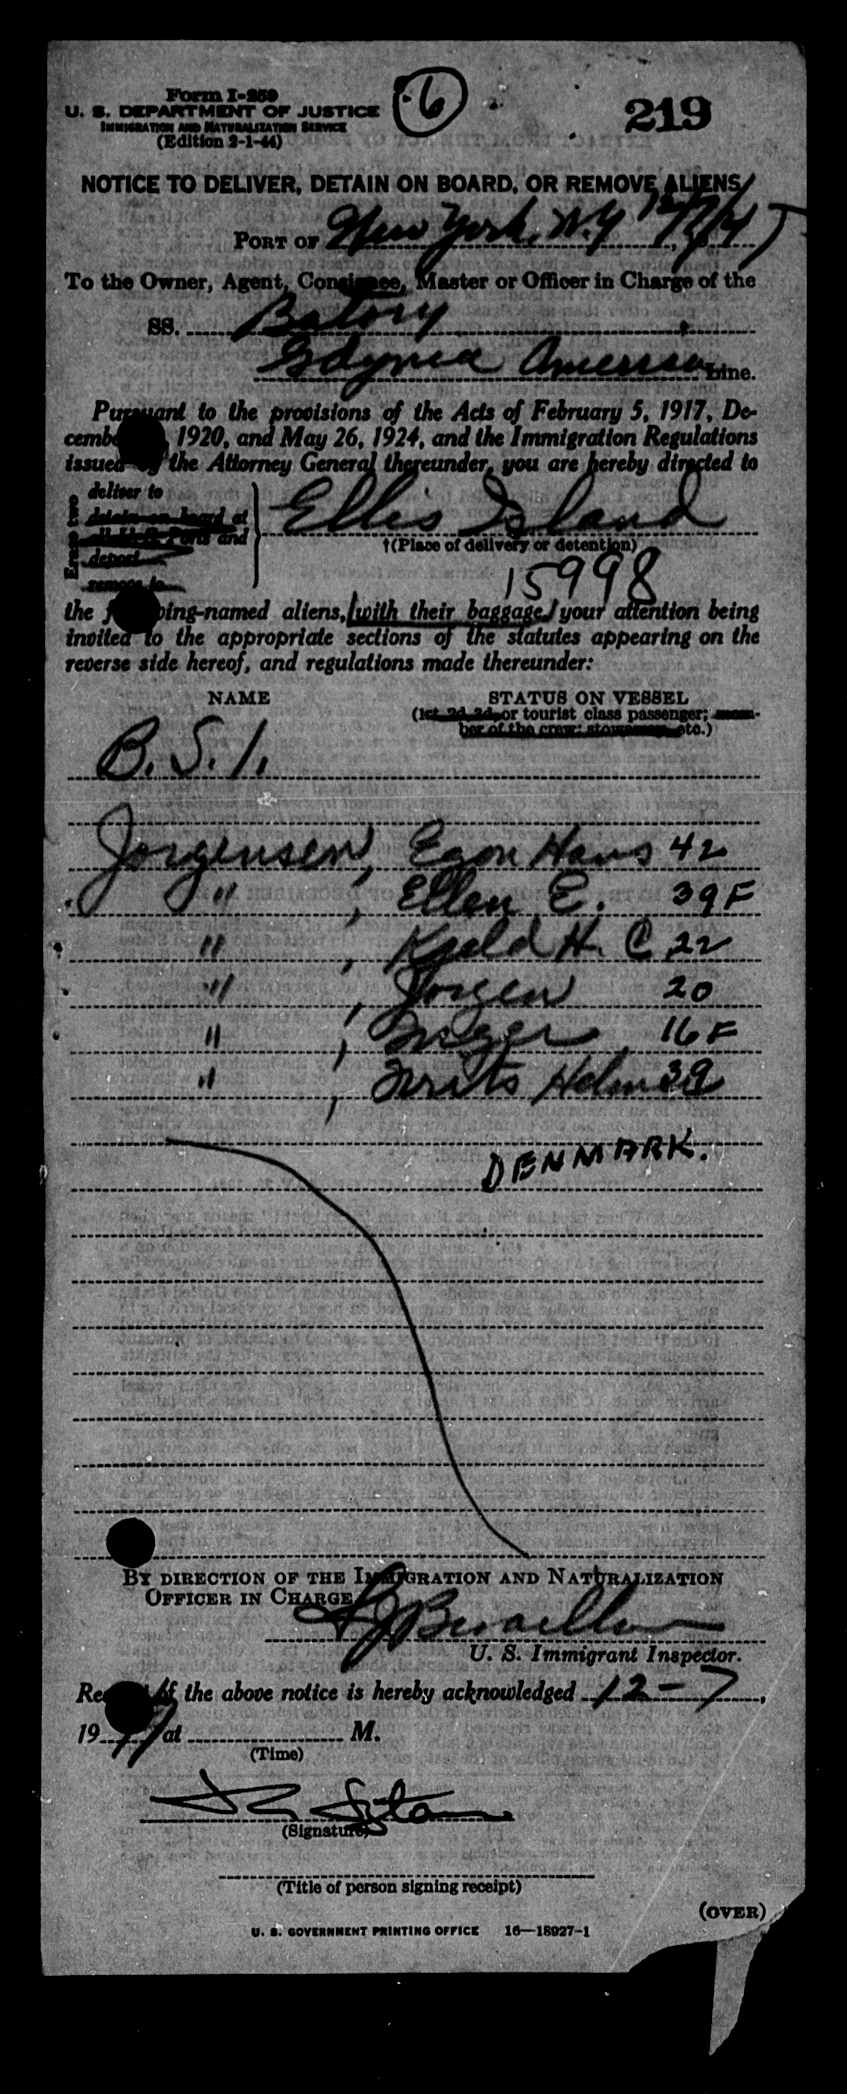 Form I-259
6
219
U. S. DEPARTMENT OF JUSTICE
IMMIGRATION AND NATURALIZATION SERVICE
(Edition 2-1-44)
NOTICE TO DELIVER, DETAIN ON BOARD, OR REMOVE ALIENS
PORT OF New York, N.Y 12/7/47
To the Owner, Agent, Consignee, Master or Officer in Charge of the
SS. Batory
Gdynia America Line.
Pursuant to the provisions of the Acts of February 5, 1917, De-
cember 1920, and May 26, 1924, and the Immigration Regulations
issued by the Attorney General thereunder, you are hereby directed to
Erase two
deliver to
detain on board at
all U. S. Ports and
deport
remove to
Ellis Island
†(Place of delivery or detention)
15998
the following-named aliens, (with their baggage) your attention being
invited to the appropriate sections of the statutes appearing on the
reverse side hereof, and regulations made thereunder:
NAME STATUS ON VESSEL
(1st, 2d, 3d, or tourist class passenger; mem-
ber of the crew; stowaway, etc.)
B. S. I.
Jorgensen, Egon Hans 42
" , Ellen E. 39 F
" , Kjeld H. C 22
" , Jorgen 20
" , Inger 16 F
" , Holm 39
DENMARK.
BY DIRECTION OF THE IMMIGRATION AND NATURALIZATION
OFFICER IN CHARGE
U. S. Immigrant Inspector.
Receipt of the above notice is hereby acknowledged 12-7,
19 47 at M.
(Time)
(Signature)
(Title of person signing receipt)
(OVER)
U. S. GOVERNMENT PRINTING OFFICE 16—18927-1